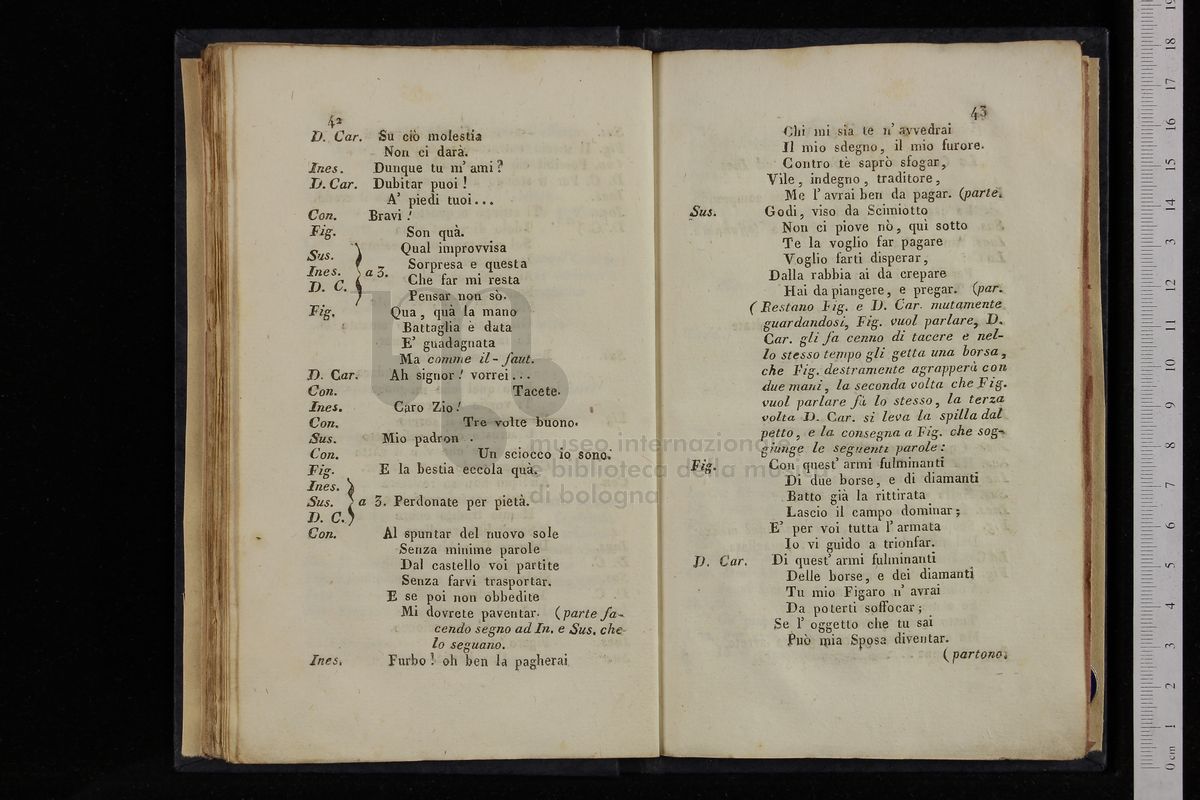 42
D. Car. Su ciò molestia
Non ci darà.
Ines. Dunque tu m' ami?
D. Car. Dubitar puoi!
A' piedi tuoi...
Con. Bravi!
Fig. Son quà.
Sus. Qual improvvisa
Ines. a 3. Sorpresa e questa
D. C. Che far mi resta
Pensar non sò.
Fig. Qua, quà la mano
Battaglia è data
E' guadagnata
Ma comme il-faut.
D. Car. Ah signor! vorrei...
Con. Tacete.
Ines. Caro Zio!
Con. Tre volte buono.
Sus. Mio padron .
Con. Un sciocco io sono.
Fig. E la bestia eccola quà.
Ines.
Sus. a 3. Perdonate per pietà.
D. C.
Con. Al spuntar del nuovo sole
Senza minime parole
Dal castello voi partite
Senza farvi trasportar.
E se poi non obbedite
Mi dovrete paventar. (parte fa-
cendo segno ad In. e Sus. che
lo seguano.
Ines. Furbo! oh ben la pagherai
43
Chi mi sia te n' avvedrai
Il mio sdegno, il mio furore.
Contro tè saprò sfogar,
Vile, indegno, traditore,
Me l' avrai ben da pagar. (parte.
Sus. Godi, viso da Scimiotto
Non ci piove nò, quì sotto
Te la voglio far pagare
Voglio farti disperar,
Dalla rabbia ai da crepare
Hai da piangere, e pregar. (par.
(Restano Fig. e D. Car. mutamente
guardandosi, Fig. vuol parlare, D.
Car. gli fa cenno di tacere e nel-
lo stesso tempo gli getta una borsa,
che Fig. destramente agrapperà con
due mani, la seconda volta che Fig.
vuol parlare fà lo stesso, la terza
volta D. Car. si leva la spilla dal
petto, e la consegna a Fig. che sog-
giunge le seguenti parole:
Fig. Con quest' armi fulminanti
Di due borse, e di diamanti
Batto già la rittirata
Lascio il campo dominar;
E' per voi tutta l' armata
Io vi guido a trionfar.
D. Car. Di quest' armi fulminanti
Delle borse, e dei diamanti
Tu mio Figaro n' avrai
Da poterti soffocar;
Se l' oggetto che tu sai
Può mia Sposa diventar.
(partono.
museo internazionale
e biblioteca della musica
di bologna
0 cm 1 2 3 4 5 6 7 8 9 10 11 12 13 14 15 16 17 18 19